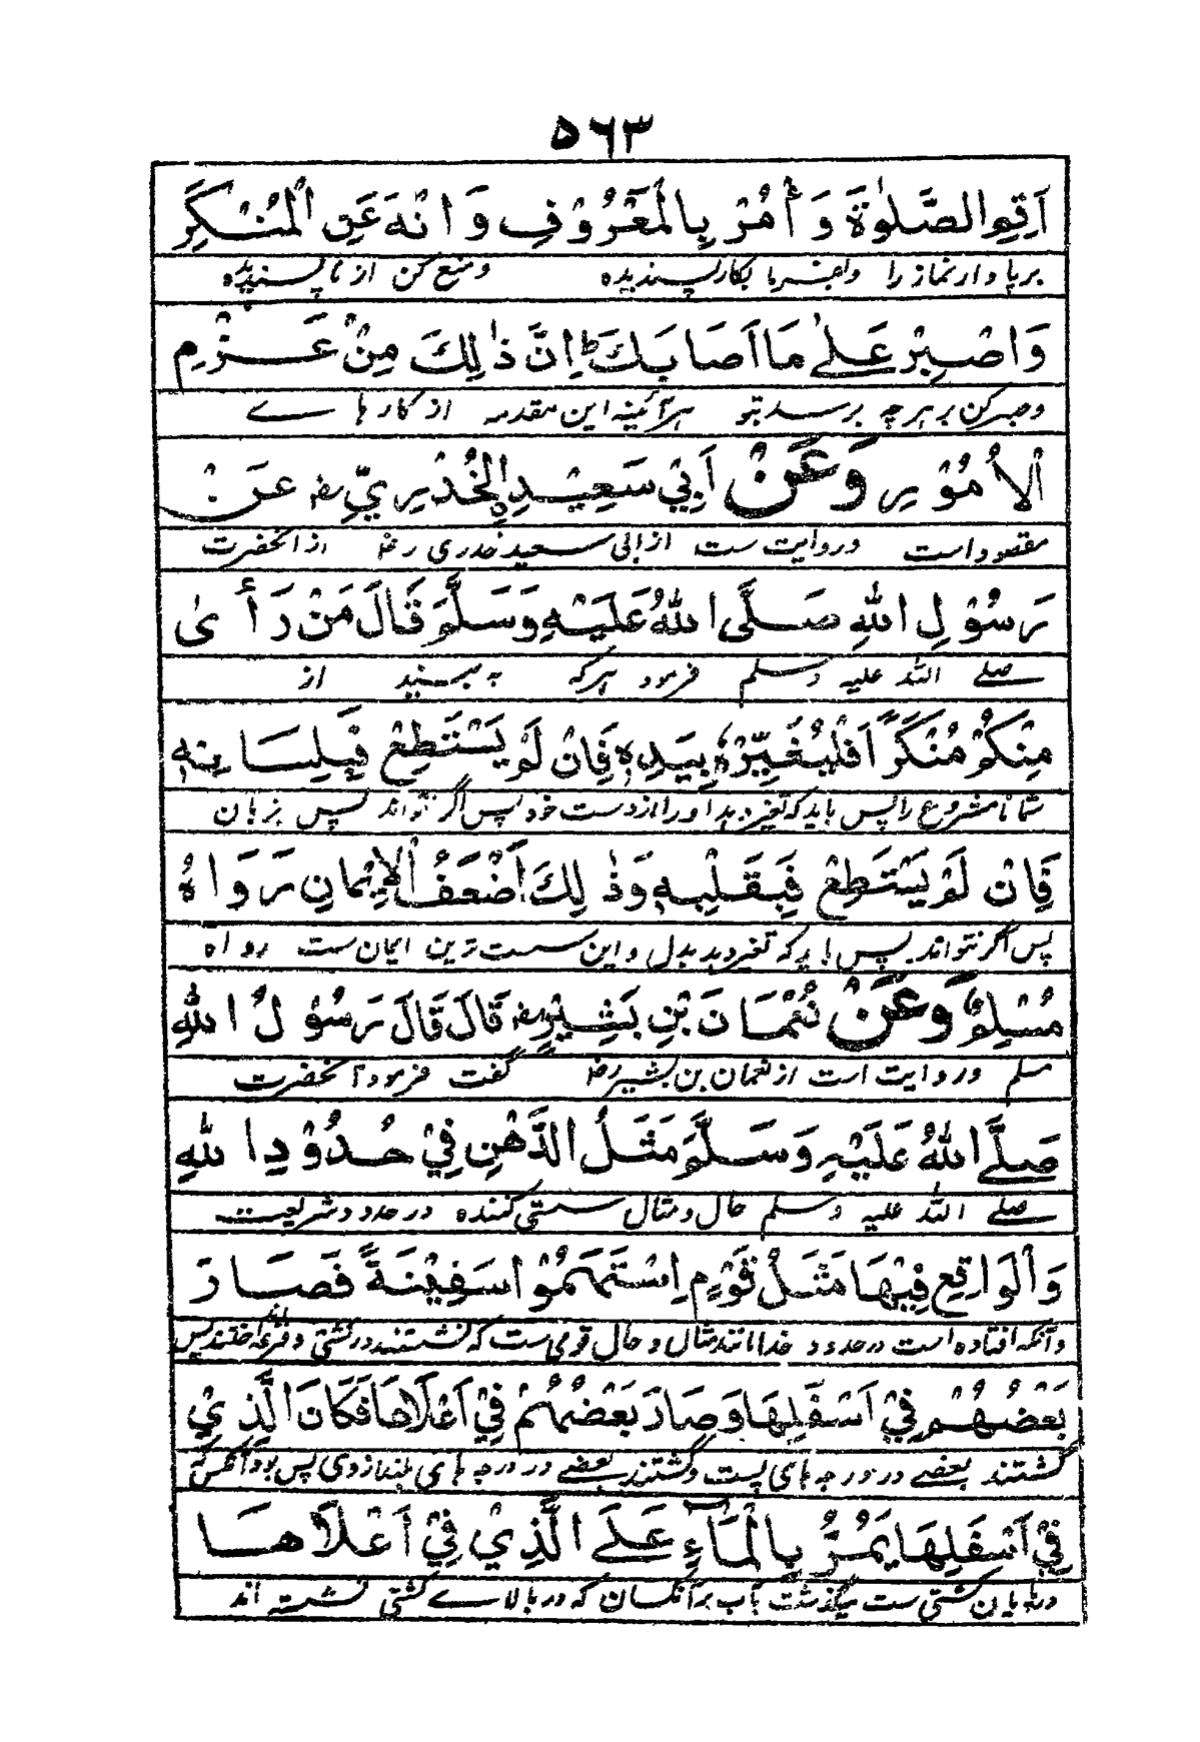 ۵۶۳
اَقِمِ الصَّلٰوةَ وَأْمُرْ بِالْمَعْرُوْفِ وَانْهَ عَنِ الْمُنْكَرِ
برپا دار نماز را وامر فرما بکار پسندیده ومنع کن از ناپسندیده
وَاصْبِرْ عَلٰى مَا اَصَابَكَ ط اِنَّ ذٰلِكَ مِنْ عَزْمِ
وصبر کن بر هر چه برسد بتو هر آئینه این مقدمه از کار هاے
الْاُمُوْرِ وَعَنْ اَبِيْ سَعِيْدِ الْخُدْرِيِّ رض عَنْ
مقصود است وروایت ست از ابی سعید خدری رض از انحضرت
رَسُوْلِ اللهِ صَلَّى اللهُ عَلَيْهِ وَسَلَّمَ قَالَ مَنْ رَأٰى
صلے الله علیه وسلم فرمود هر که به بیند از
مِنْكُمْ مُنْكَرًا فَلْيُغَيِّرْهُ بِيَدِهٖ فَاِنْ لَمْ يَسْتَطِعْ فَبِلِسَانِهٖ
شما نامشروع را پس باید که تغیر دهد او را از دست خود پس اگر نتواند پس بزبان
فَاِنْ لَمْ يَسْتَطِعْ فَبِقَلْبِهٖ وَذٰلِكَ اَضْعَفُ الْاِيْمَانِ رَوَاهُ
پس اگر نتواند پس باید که تغیر دهد بدل و این سست ترین ایمان ست رواه
مُسْلِمٌ وَعَنْ نُعْمَانَ بْنِ بَشِيْرٍ رض قَالَ قَالَ رَسُوْلُ اللهِ
مسلم وروایت است از نعمان بن بشیر رض گفت فرمود آنحضرت
صَلَّے اللهُ عَلَيْهِ وَسَلَّمَ مَثَلُ الْمُدْهِنِ فِيْ حُدُوْدِ اللهِ
صلے الله علیه وسلم حال و مثال سستی کننده در حدود شریعت
وَالْوَاقِعِ فِيْهَا مَثَلُ قَوْمٍ اِسْتَهَمُوْا سَفِيْنَةً فَصَارَ
وآنکه افتاده است در حدود خدا مانند مثال و حال قومی ست که نشستند در کشتی و قرعه انداختند پس
بَعْضُهُمْ فِيْ اَسْفَلِهَا وَصَارَ بَعْضُهُمْ فِيْ اَعْلَاهَا فَكَانَ الَّذِيْ
گشتند بعضے در درجه های پست وگشتند بعضے در درجه های بلند از وی پس بود آنکس که
فِيْ اَسْفَلِهَا يَمُرُّ بِالْمَآءِ عَلَے الَّذِيْ فِيْ اَعْلَاهَا
در پایان کشتی ست میگذشت بآب بر آنکسان که در بالاے کشتی نشسته اند